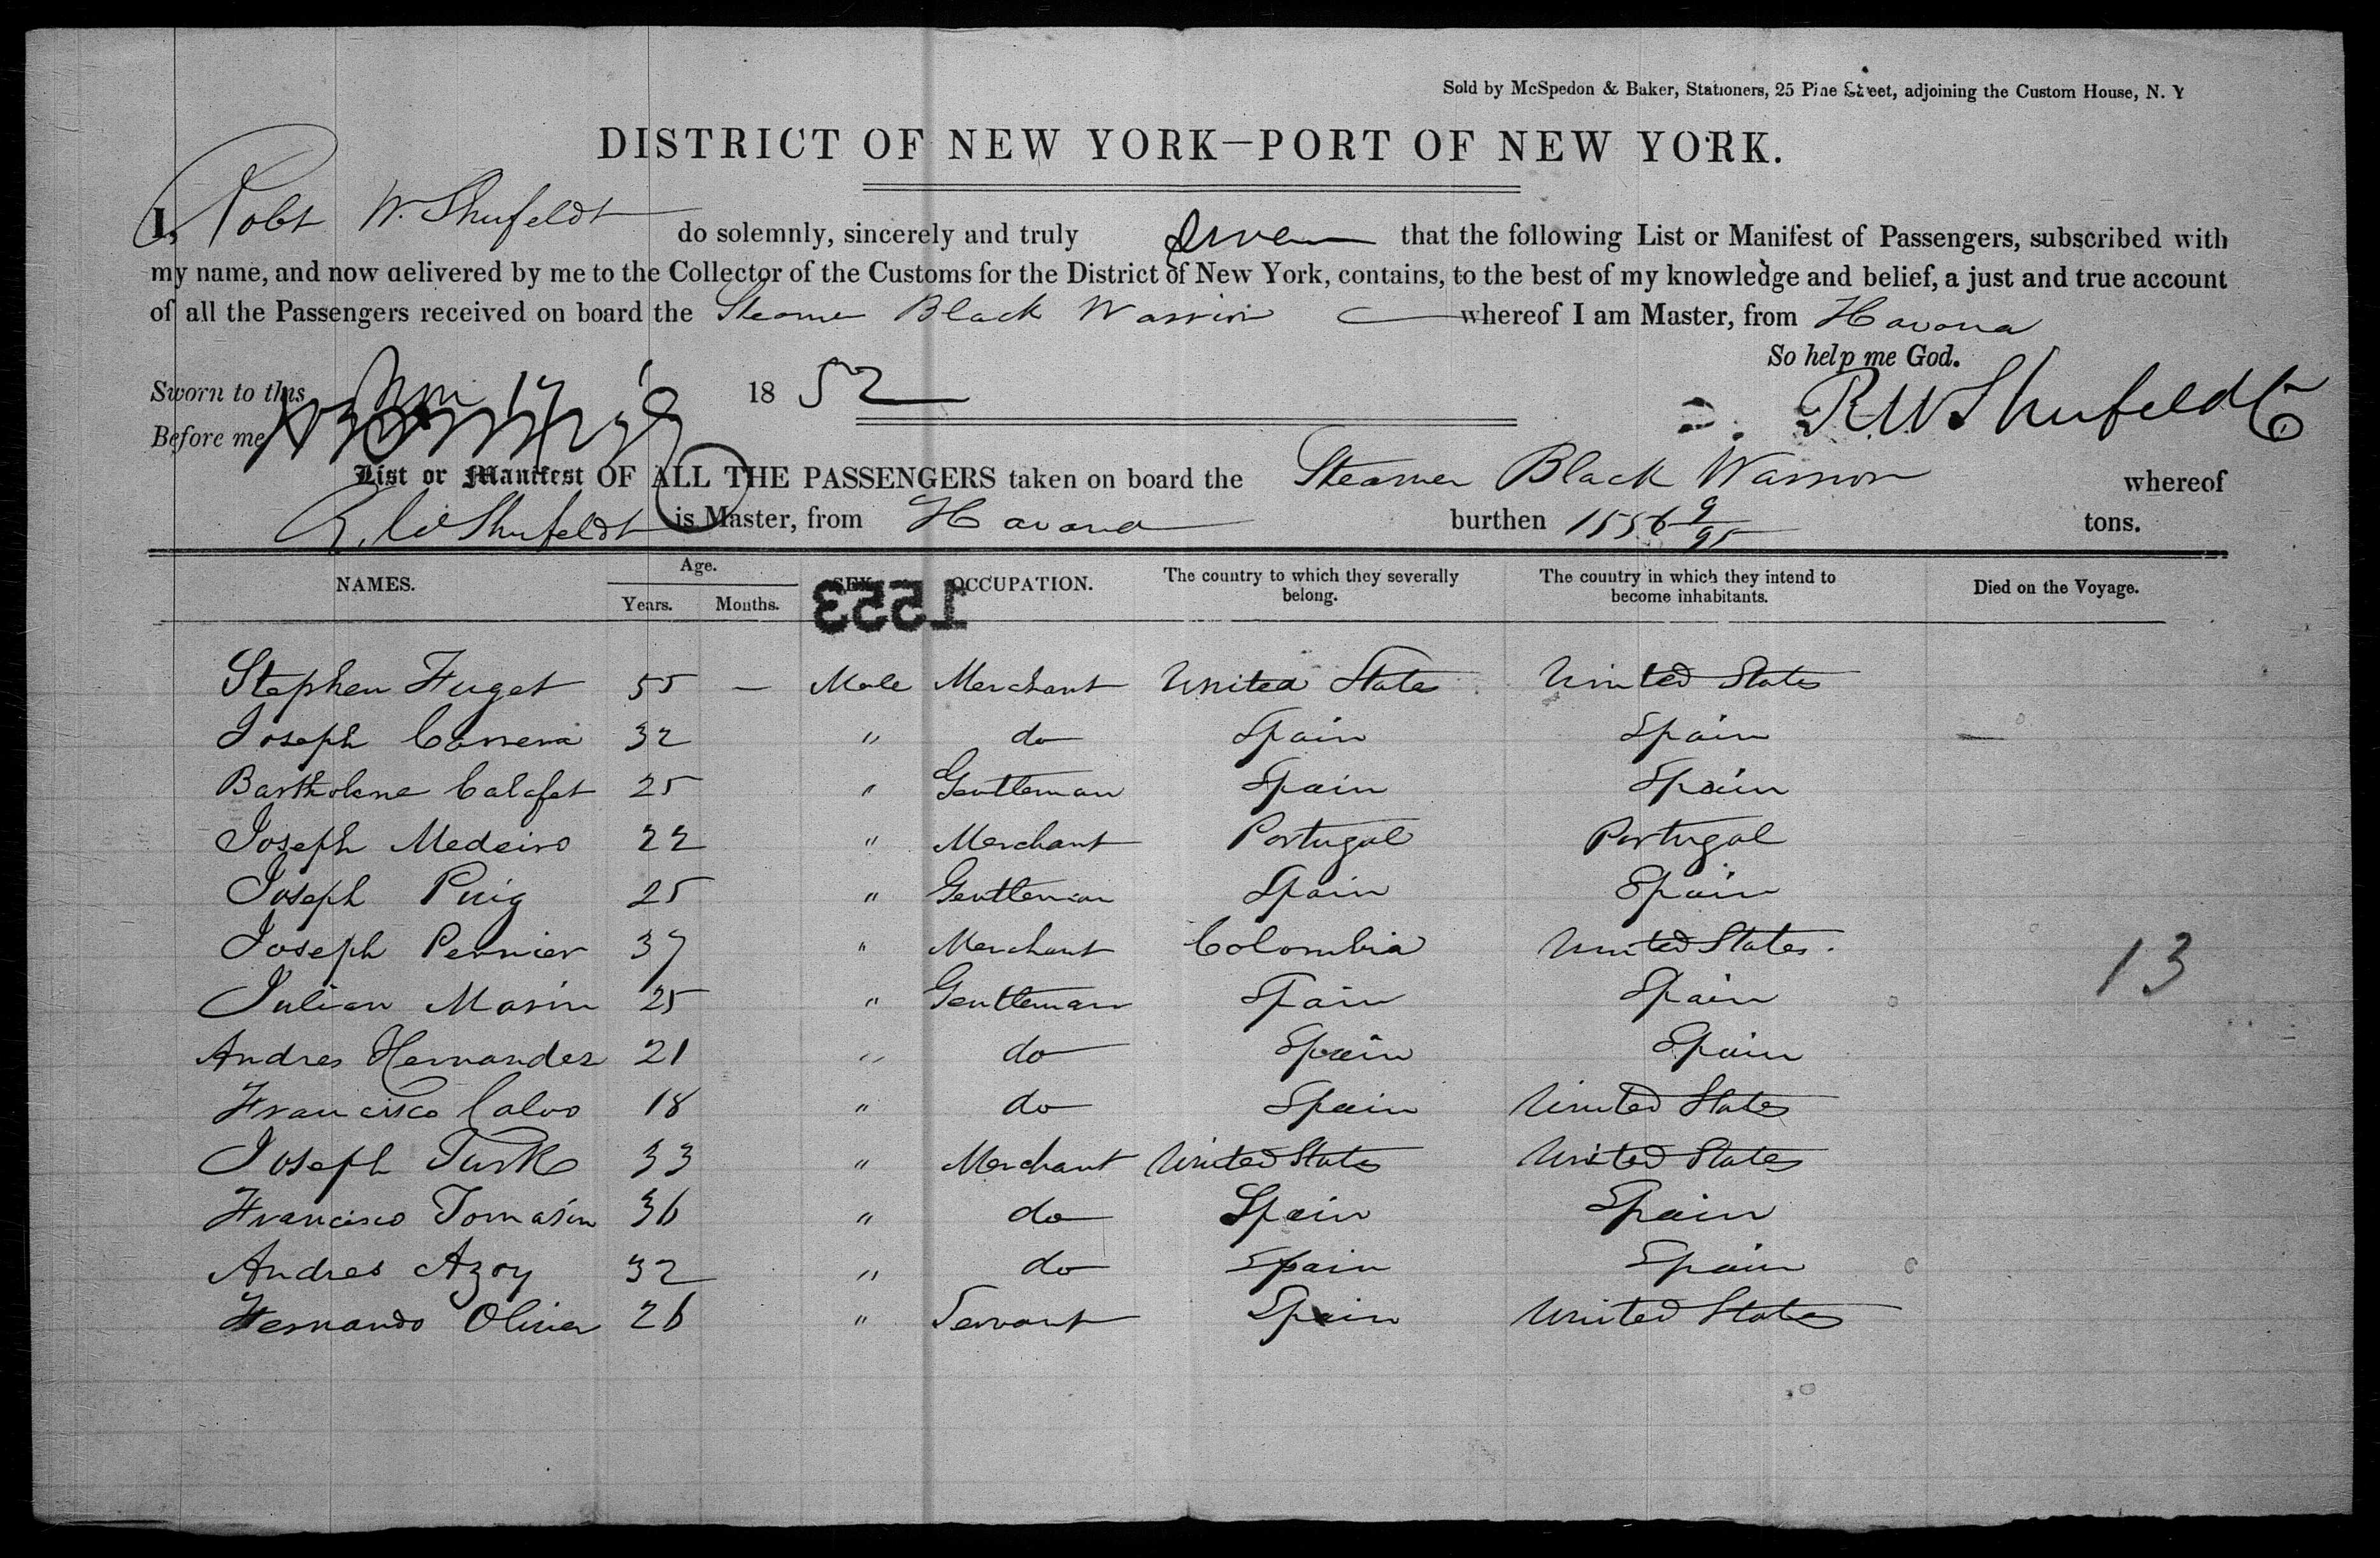 Sold by McSpedon & Baker, Stationers, 25 Pine Street, adjoining the Custom House, N. Y
DISTRICT OF NEW YORK—PORT OF NEW YORK.
I, Robt W. Shufeldt do solemnly, sincerely and truly swear that the following List or Manifest of Passengers, subscribed with
my name, and now delivered by me to the Collector of the Customs for the District of New York, contains, to the best of my knowledge and belief, a just and true account
of all the Passengers received on board the Steamer Black Warrior whereof I am Master, from Havana
So help me God.
Sworn to this 17 1852
R W Shufeldt
Before me
List or Manifest OF ALL THE PASSENGERS taken on board the Steamer Black Warrior whereof
R. W Shufeldt is Master, from Havana burthen 1556 9/95 tons.
NAMES. Age. Years. Months. SEX. OCCUPATION. The country to which they severally belong. The country in which they intend to become inhabitants. Died on the Voyage.
1553
Stephen Huget 55 — Male Merchant United States United States
Joseph Carrera 32 " do Spain Spain —
Bartholome Calafat 25 " Gentleman Spain Spain
Joseph Medeiro 22 " Merchant Portugal Portugal
Joseph Puig 25 " Gentleman Spain Spain
Joseph Pernier 37 " Merchant Colombia United States.
13
Julian Marin 25 " Gentleman Spain Spain
Andres Hernandez 21 " do Spain Spain
Francisco Calvo 18 " do Spain United States
Joseph Turk 33 " Merchant United States United States
Francisco Tomasin 36 " do Spain Spain
Andres Azoy 32 " do Spain Spain
Hernando Olivier 26 " Servant Spain United States